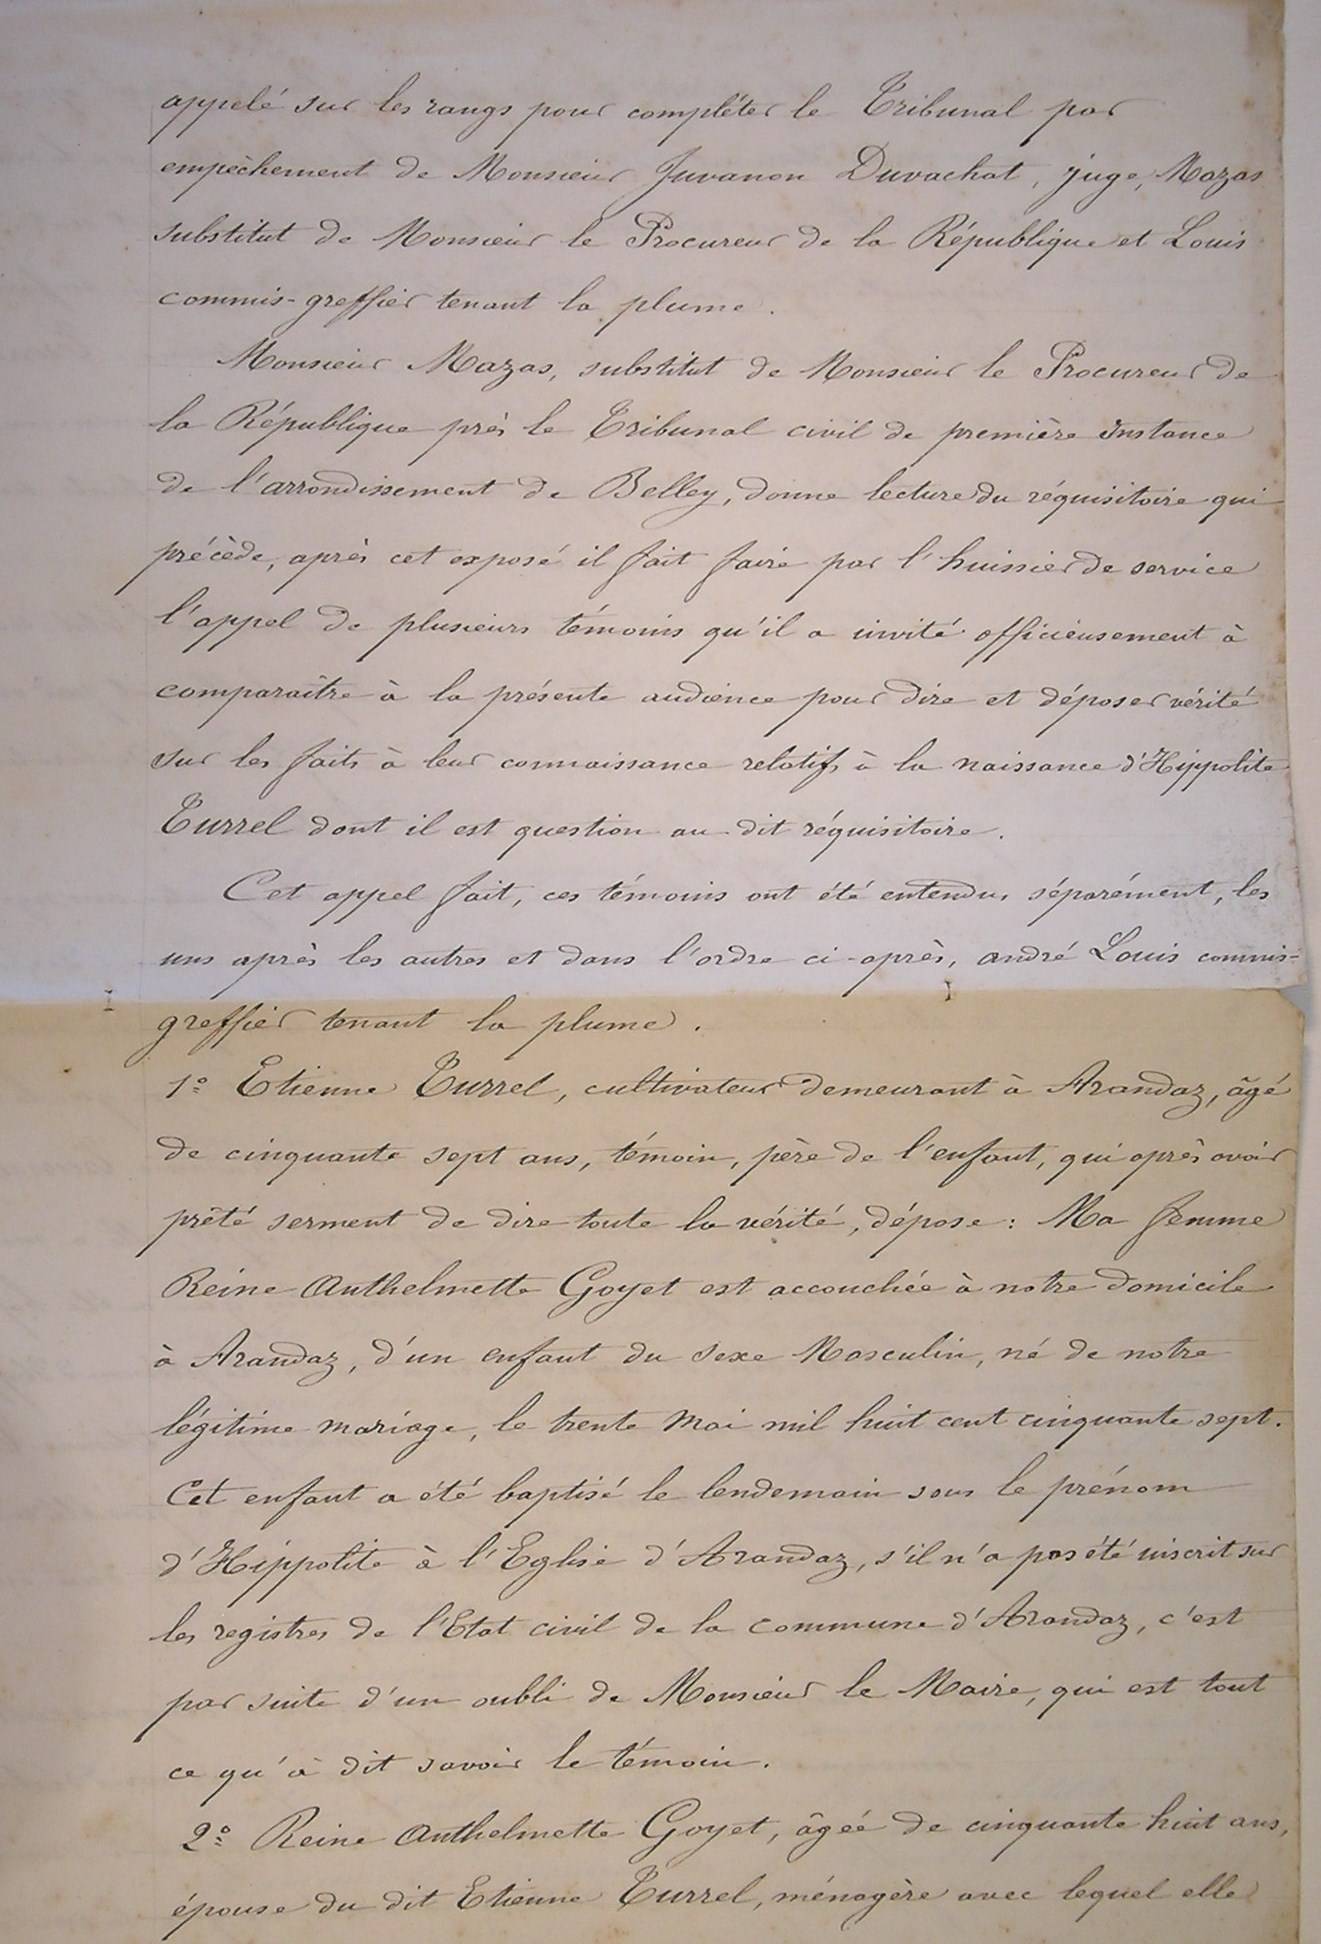 appelé sur les rangs pour compléter le Tribunal par
empêchement de Monsieur Juvanon Duvachat, juge, Mazas
substitut de Monsieur le Procureur de la République et Louis
commis-greffier tenant la plume.
Monsieur Mazas, substitut de Monsieur le Procureur de
la République près le Tribunal civil de première Instance
de l'arrondissement de Belley, donne lecture du réquisitoire qui
précède, après cet exposé il fait faire par l'huissier de service
l'appel de plusieurs témoins qu'il a invité officieusement à
comparaître à la présente audience pour dire et déposer vérité
sur les faits à leur connaissance relatifs à la naissance d'Hippolite
Turrel dont il est question au dit réquisitoire.
Cet appel fait, ces témoins ont été entendus séparément, les
uns après les autres et dans l'ordre ci-après, andré Louis commis-
greffier tenant la plume.
1º Etienne Turrel, cultivateur demeurant à Arandaz, âgé
de cinquante sept ans, témoin, père de l'enfant, qui après avoir
prêté serment de dire toute la vérité, dépose : Ma femme
Reine Anthelmette Goyet est accouchée à notre domicile
à Arandaz, d'un enfant du sexe Masculin, né de notre
légitime mariage, le trente Mai mil huit cent cinquante sept.
Cet enfant a été baptisé le lendemain sous le prénom
d'Hippolite à l'Eglise d'Arandaz, s'il n'a pas été inscrit sur
les registres de l'Etat civil de la commune d'Arandaz, c'est
par suite d'un oubli de Monsieur le Maire, qui est tout
ce qu'à dit savoir le témoin.
2º Reine Anthelmette Goyet, âgée de cinquante huit ans,
épouse du dit Etienne Turrel, ménagère avec lequel elle